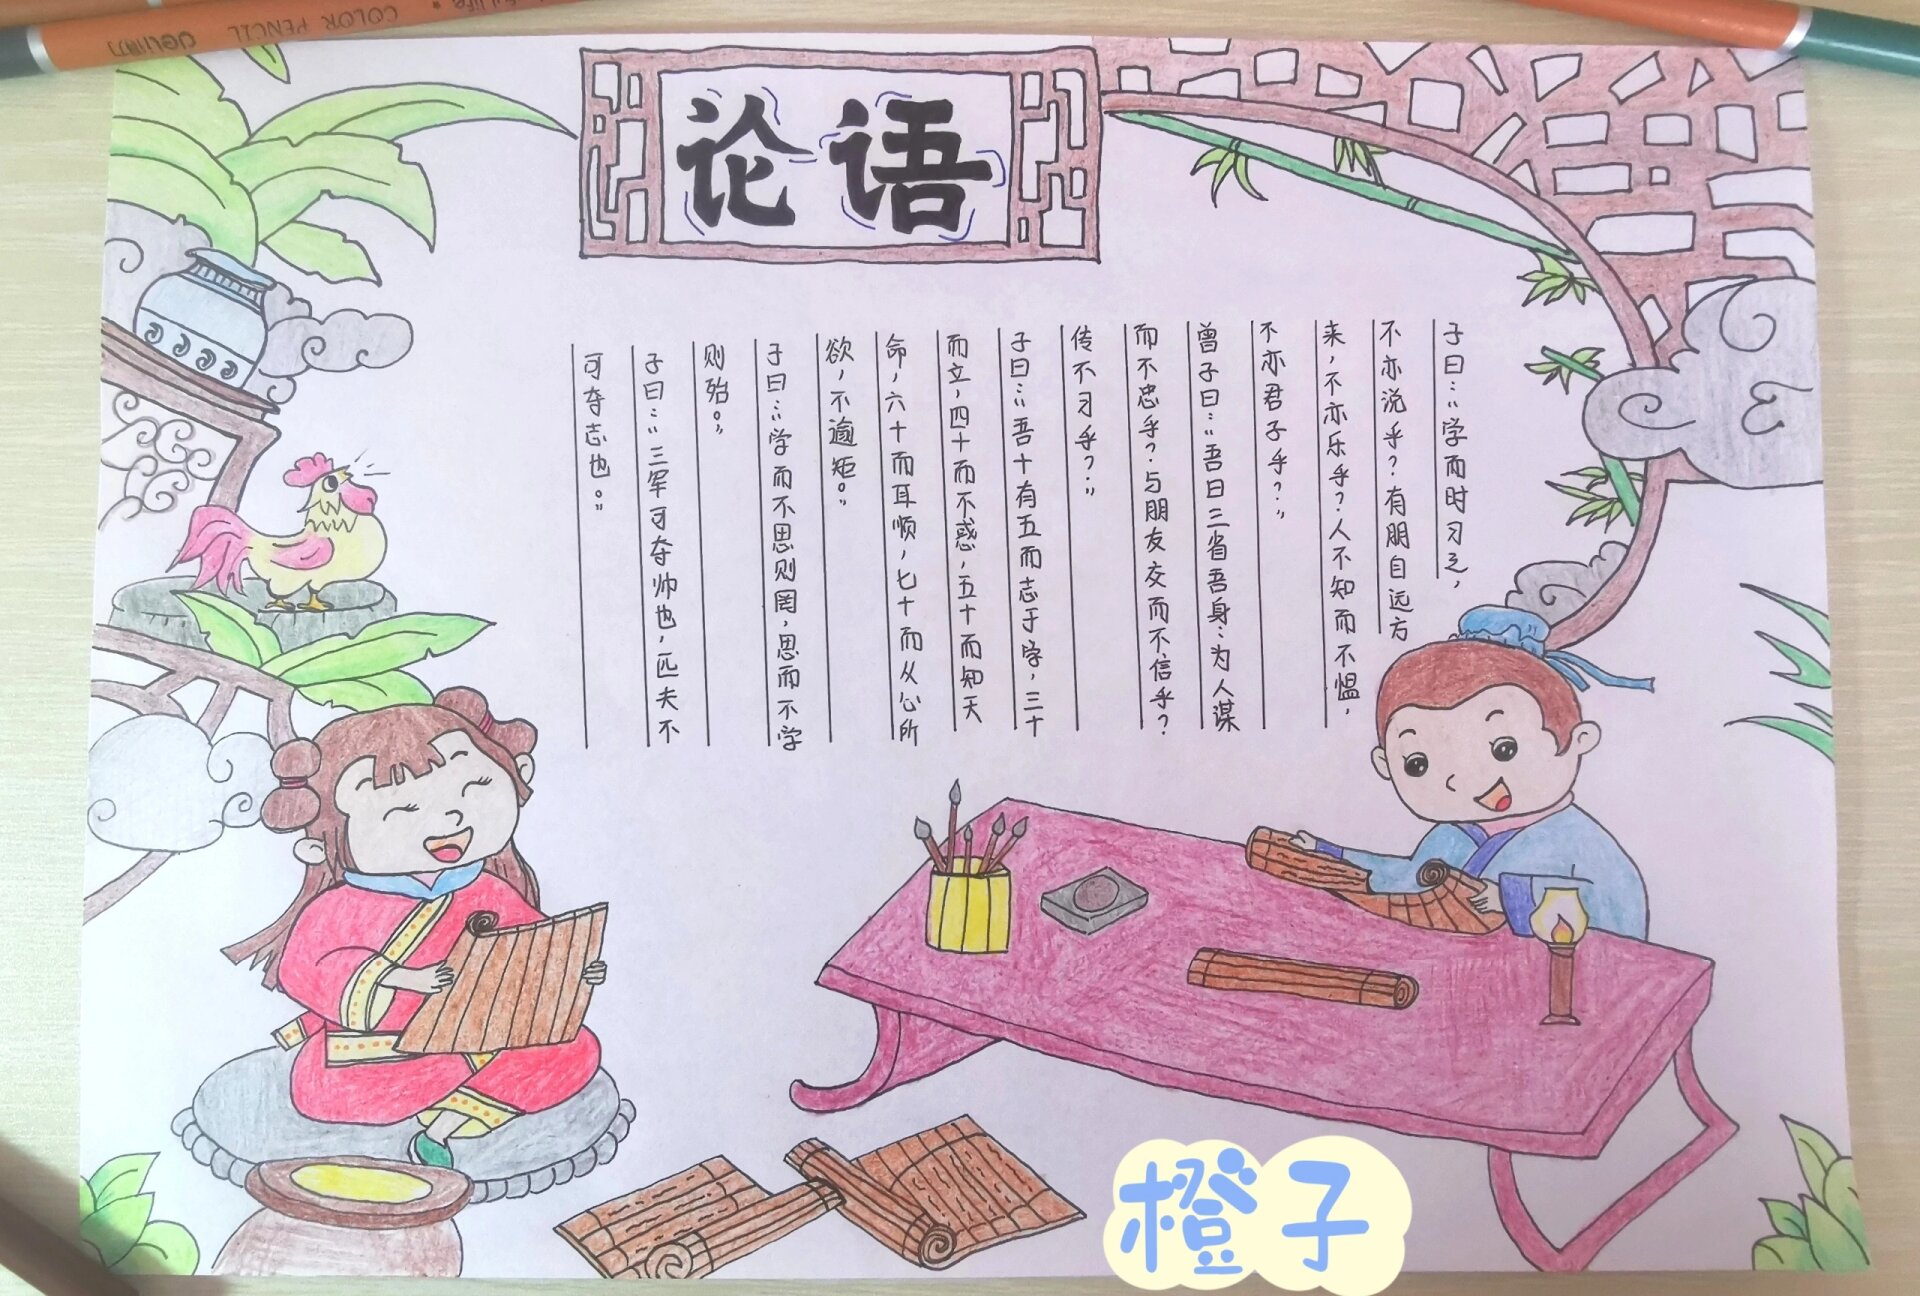 论语
子曰：“学而时习之，
不亦说乎？有朋自远方
来，不亦乐乎？人不知而不愠，
不亦君子乎？”
曾子曰：“吾日三省吾身：为人谋
而不忠乎？与朋友交而不信乎？
传不习乎？”
子曰：“吾十有五而志于学，三十
而立，四十而不惑，五十而知天
命，六十而耳顺，七十而从心所
欲，不逾矩。”
子曰：“学而不思则罔，思而不学
则殆。”
子曰：“三军可夺帅也，匹夫不
可夺志也。”
橙子
deli得力 COLOR PENCIL